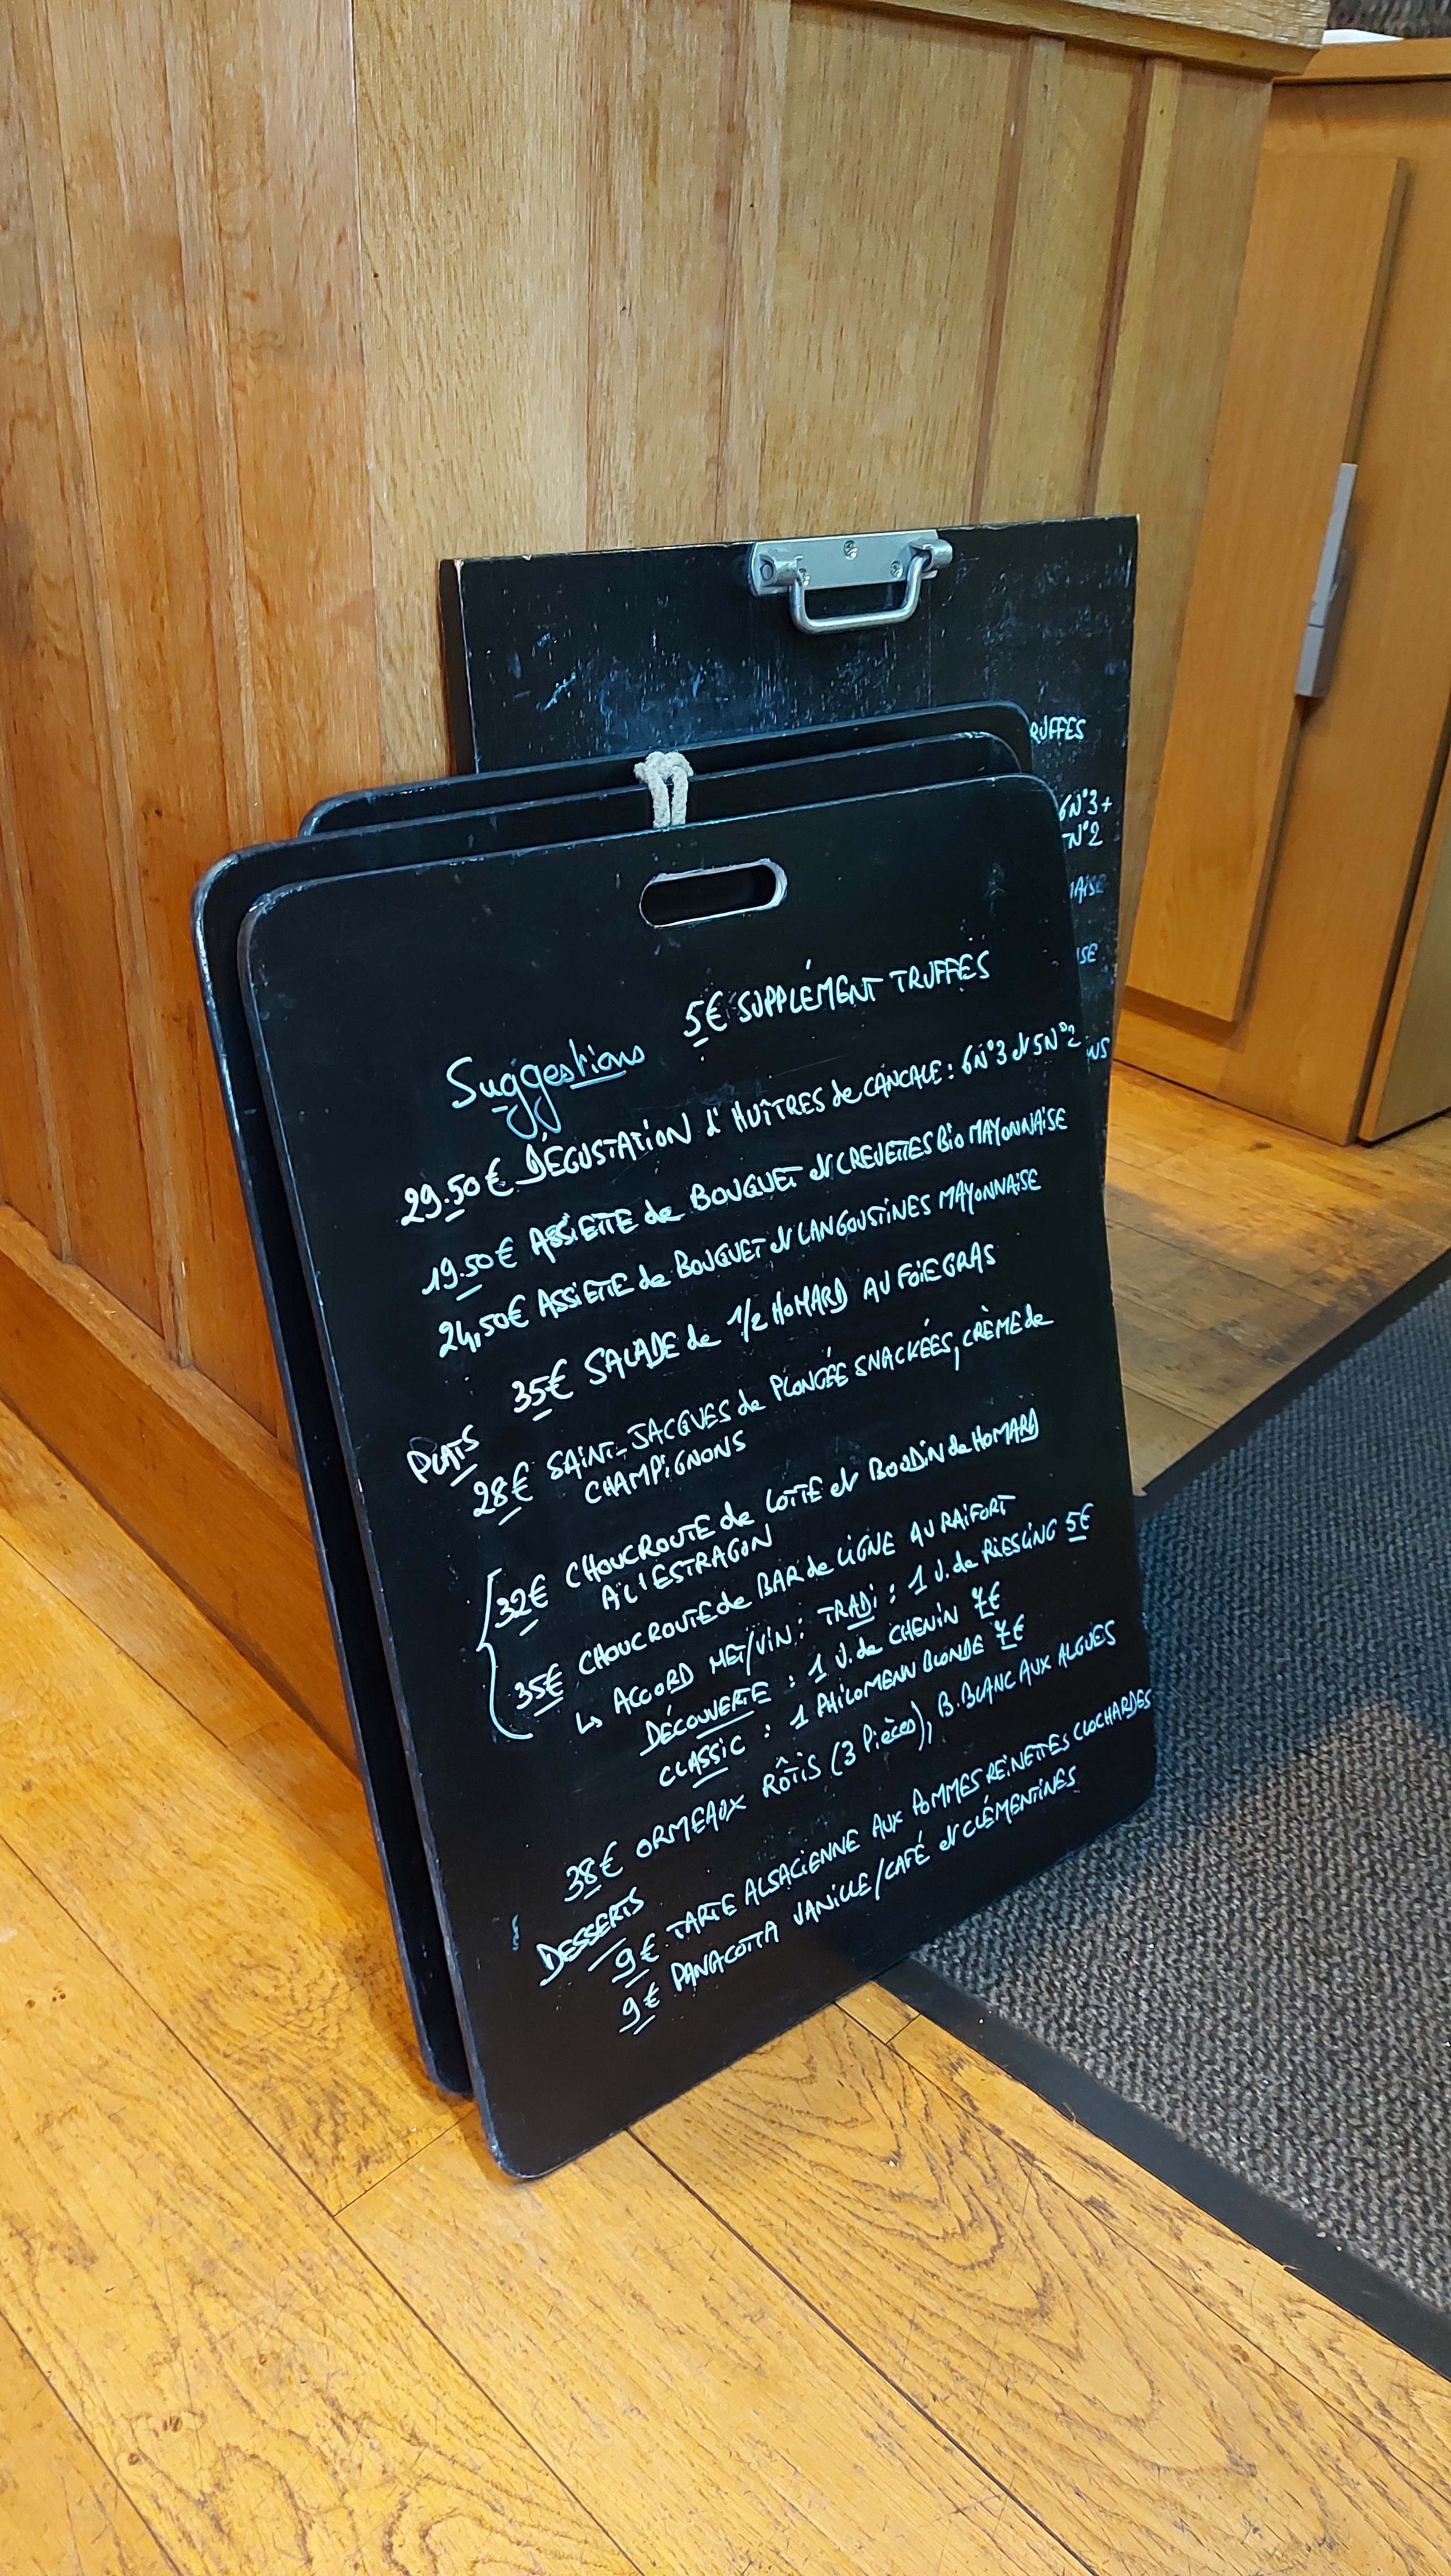 RUFFES
6N°3+
N°2
AISE
ISE
NS
5€ SUPPLÉMENT TRUFFES
Suggestions
29.50€ DÉGUSTATION d'HUÎTRES de CANCALE : 6N°3 et 5N°2
19.50€ ASSIETTE de BOUQUET et CREVETTES BIO MAYONNAISE
24,50€ ASSIETTE de BOUQUET et LANGOUSTINES MAYONNAISE
35€ SALADE de 1/2 HOMARD AU FOIE GRAS
PLATS
28€ SAINT-JACQUES de PLONGÉE SNACKÉES, CRÈME de
CHAMPIGNONS
32€ CHOUCROUTE de LOTTE et BOUDIN de HOMARD
À L'ESTRAGON
35€ CHOUCROUTE de BAR de LIGNE AU RAIFORT
↳ ACCORD MET/VIN : TRADI : 1 V. de RIESLING 5€
DÉCOUVERTE : 1 V. de CHENIN 7€
CLASSIC : 1 PHILOMENN BLONDE 7€
38€ ORMEAUX RÔTIS (3 Pièces), B. BLANC AUX ALGUES
DESSERTS
9€ TARTE ALSACIENNE AUX POMMES REINETTES CLOCHARDES
9€ PANACOTTA VANILLE/CAFÉ et CLÉMENTINES